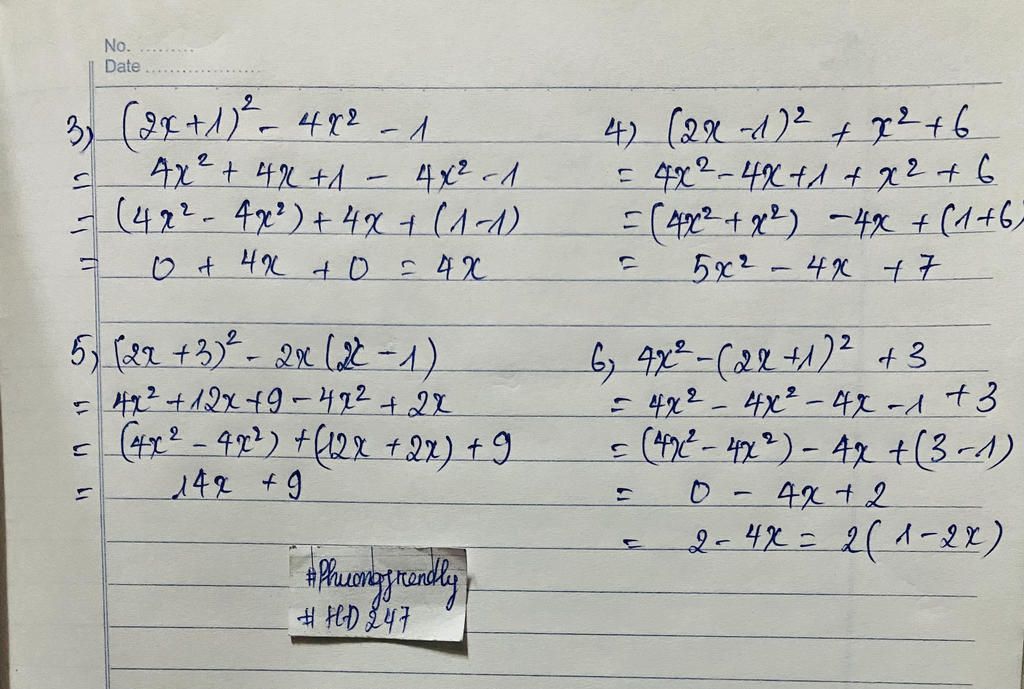 No. .........
Date ...................
3) (2x+1)² - 4x² - 1
= 4x² + 4x + 1 - 4x² - 1
= (4x² - 4x²) + 4x + (1-1)
= 0 + 4x + 0 = 4x
4) (2x - 1)² + x² + 6
= 4x² - 4x + 1 + x² + 6
= (4x² + x²) - 4x + (1+6)
= 5x² - 4x + 7
5) (2x + 3)² - 2x (2x - 1)
= 4x² + 12x + 9 - 4x² + 2x
= (4x² - 4x²) + (12x + 2x) + 9
= 14x + 9
6) 4x² - (2x + 1)² + 3
= 4x² - 4x² - 4x - 1 + 3
= (4x² - 4x²) - 4x + (3 - 1)
= 0 - 4x + 2
= 2 - 4x = 2(1 - 2x)
#Phuongfrendly
#HD247